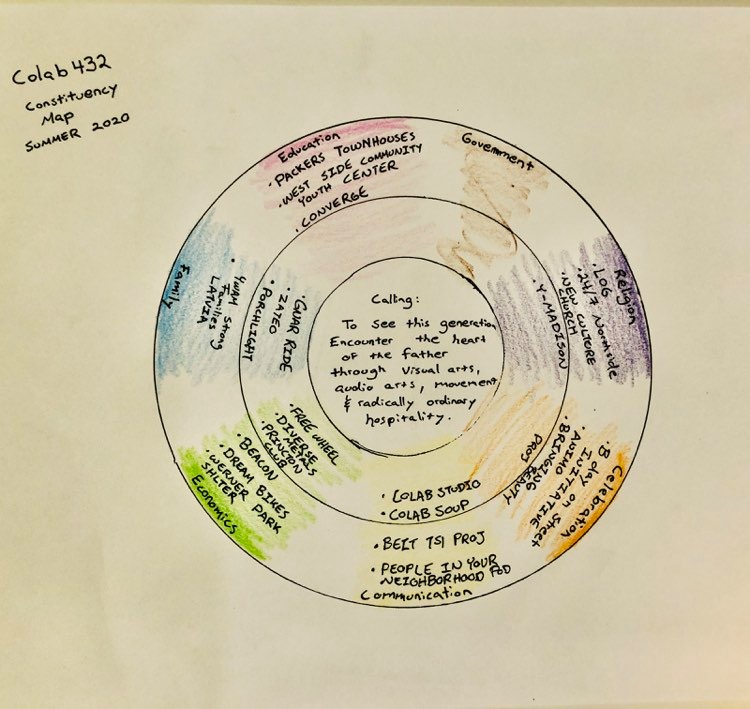 Colab 432
Constituency
Map
SUMMER 2020
Education
• PACKERS TOWNHOUSES
• WEST SIDE COMMUNITY
YOUTH CENTER
• CONVERGE
Government
Religion
• LOG
• 24/7 Northside
• NEW CULTURE
CHURCH
• Y-MADISON
Celebration
• Bday on Street
INITIATIVE
• ANIMO
• BRINGING BEAUTY
PROJ
Communication
• COLAB STUDIO
• COLAB SOUP
• BEIT 751 PROJ
• PEOPLE IN YOUR
NEIGHBORHOOD POD
Economics
• FREE WHEEL
• DIVERSE
METALS
• PRINCTON
CLUB
• BEACON
• DREAM BIKES
• WERNER PARK
SHLTER
Family
• YWAM Strong
Families
LATVIA
• RIDE
• ZATEO
• PORCHLIGHT
Calling:
To see this generation
Encounter the heart
of the father
through visual arts,
audio arts, movement
& radically ordinary
hospitality.